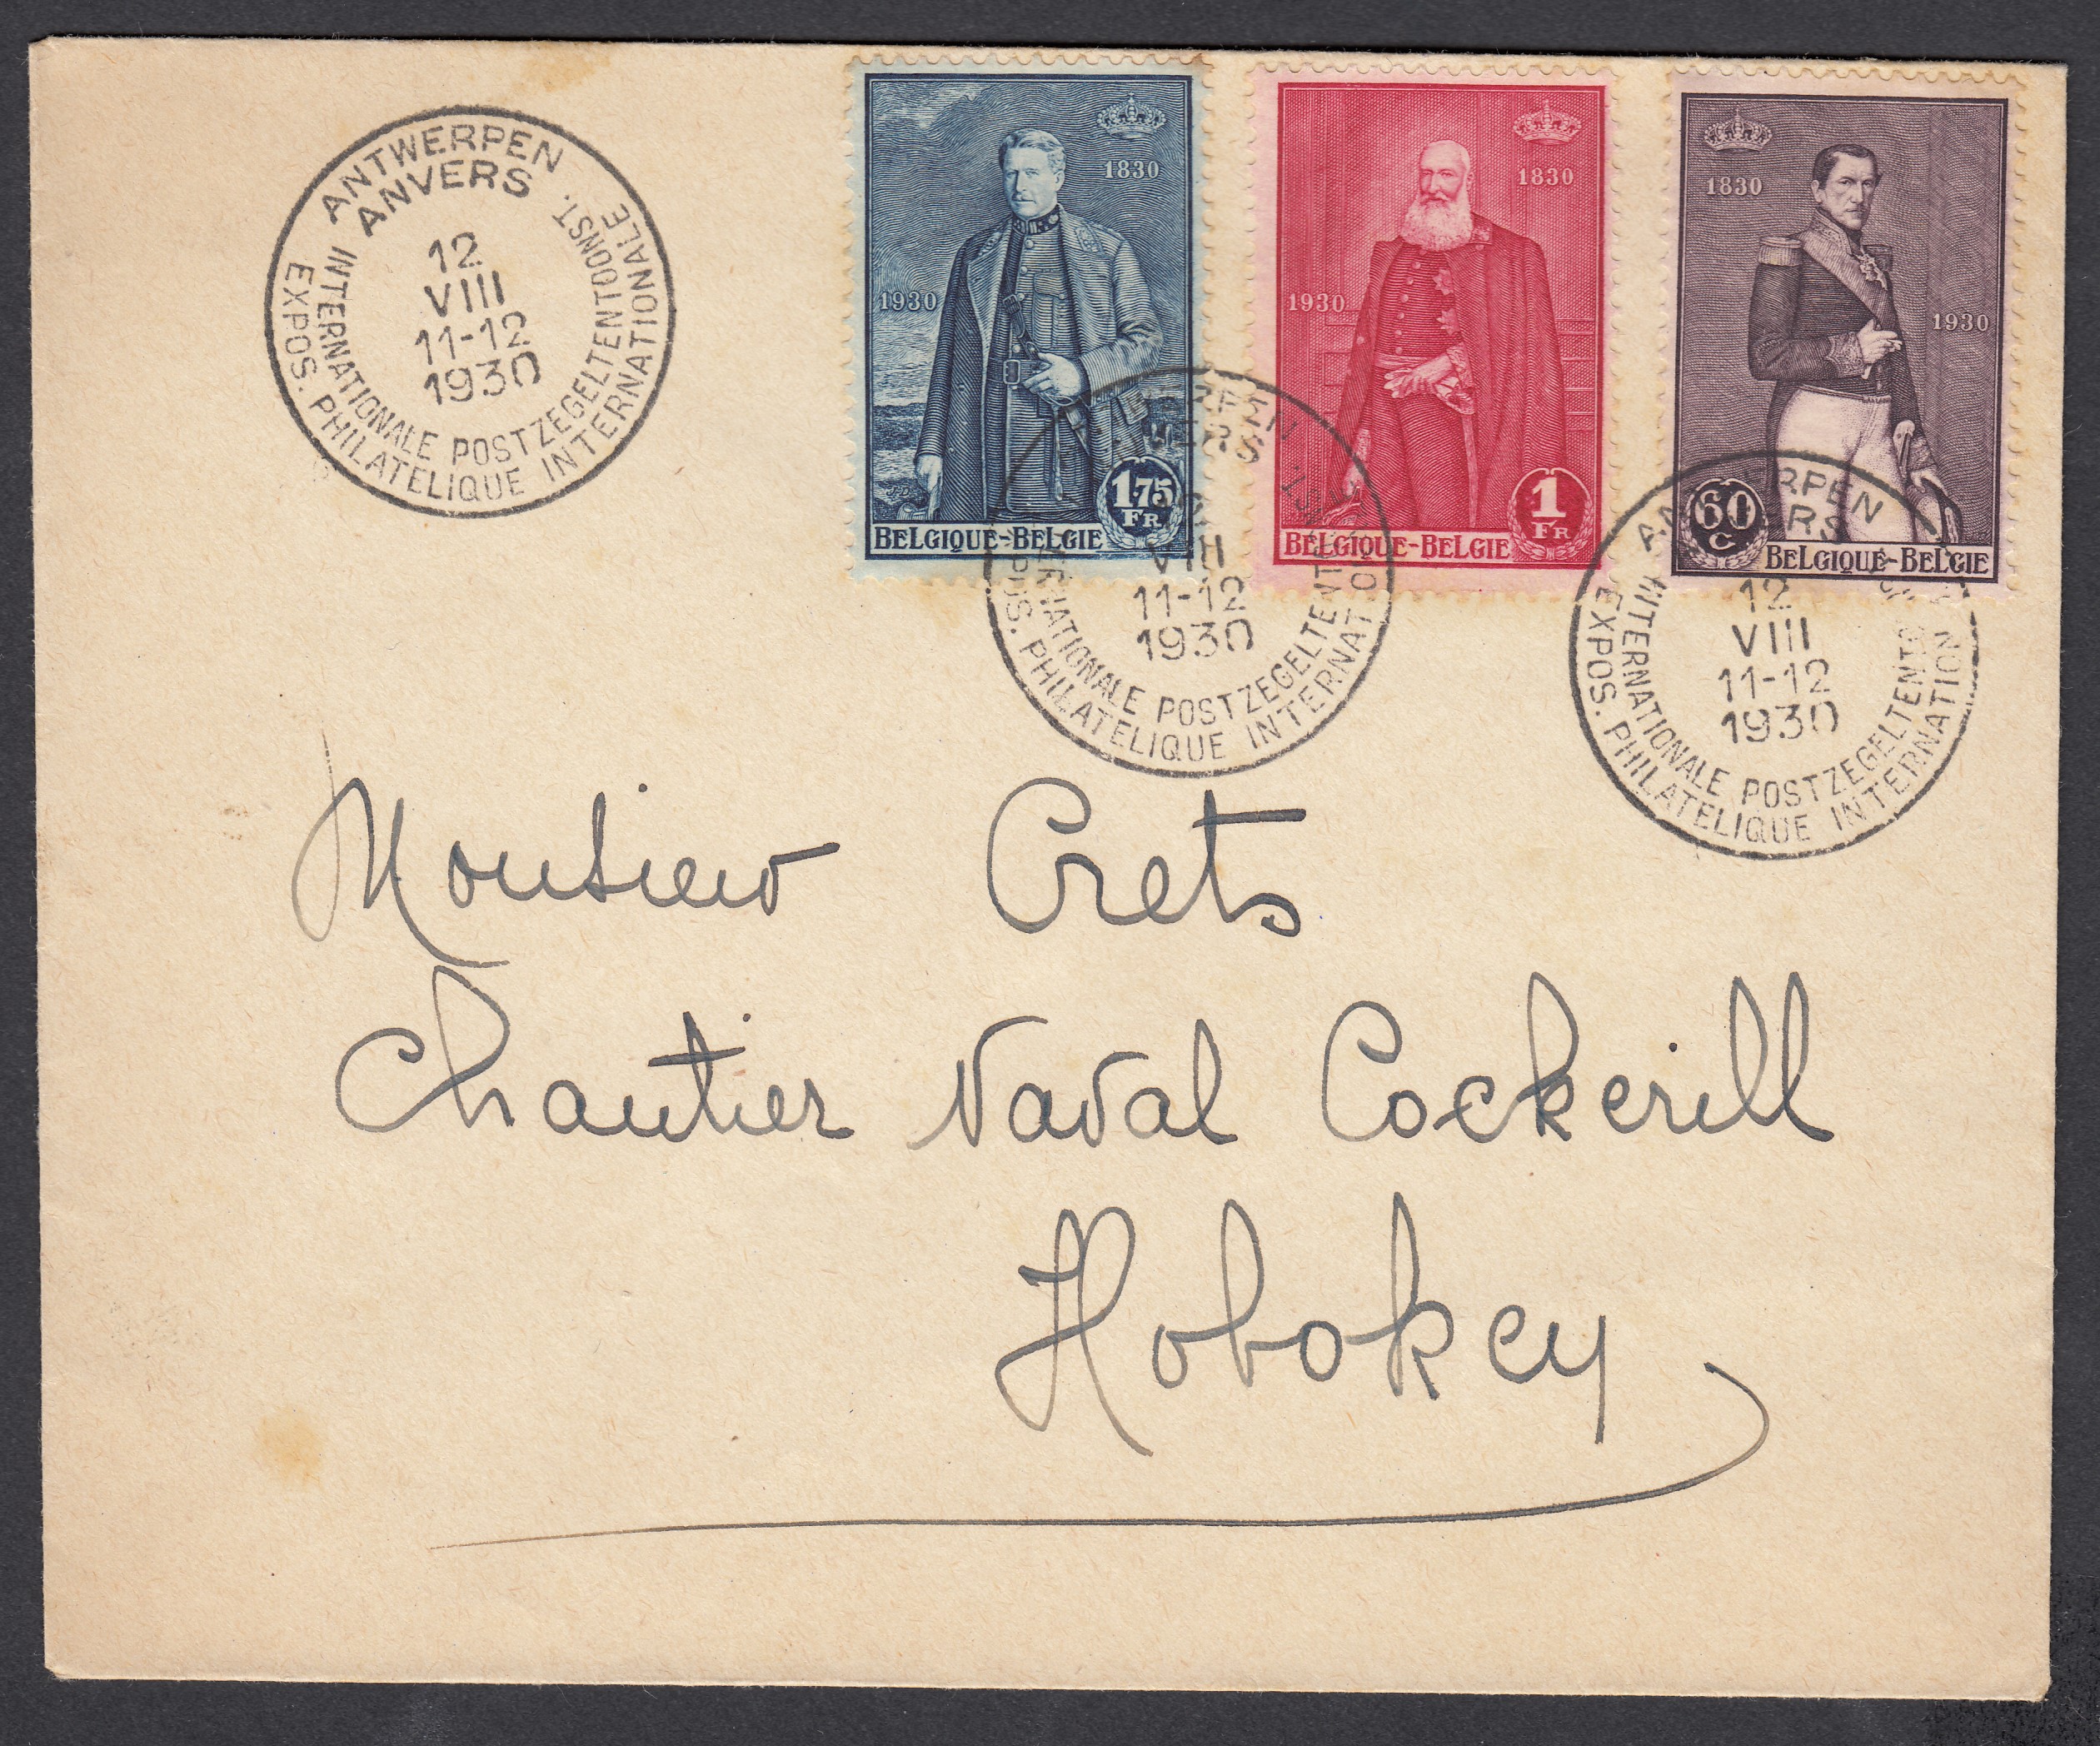 ANTWERPEN
ANVERS
12
VIII
11-12
1930
INTERNATIONALE POSTZEGELTENTOONST.
EXPOS. PHILATELIQUE INTERNATIONALE
1830
1930
1.75
FR
BELGIQUE-BELGIE
1830
1930
1
FR
BELGIQUE-BELGIE
1830
1930
60
C
BELGIQUE-BELGIE
VIII
11-12
1930
POSTZEGELTENT
PHILATELIQUE INTERNAT
12
VIII
11-12
1930
INTERNATIONALE POSTZEGELTENTO
EXPOS. PHILATELIQUE INTERNATION
Monsieur Crets
Chantier Naval Cockerill
Hoboken